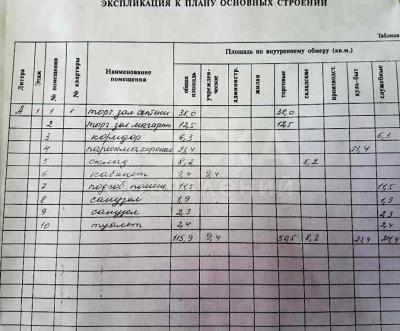 ЭКСПЛИКАЦИЯ К ПЛАНУ ОСНОВНЫХ СТРОЕНИЙ
Таблица
Литера Этаж № помещения № квартиры Наименование помещения Площадь по внутреннему обмеру (кв.м.)
общая площадь учрежден-ческое администр. жилая торговые складские производст. культ-быт служебные
А 1 1 1 торг. зал 38,0 38,0
2 торг. зал 12,5 12,5
3 коридор 6,3 6,3
4 парикмахерская 23,4 23,4
5 склад 8,2 8,2
6 кабинет 9,4 9,4
7 подсоб. помещ. 11,5 11,5
8 санузел 1,9 1,9
9 санузел 2,3 2,3
10 туалет 2,4 2,4
115,9 9,4 50,5 8,2 23,4 24,4